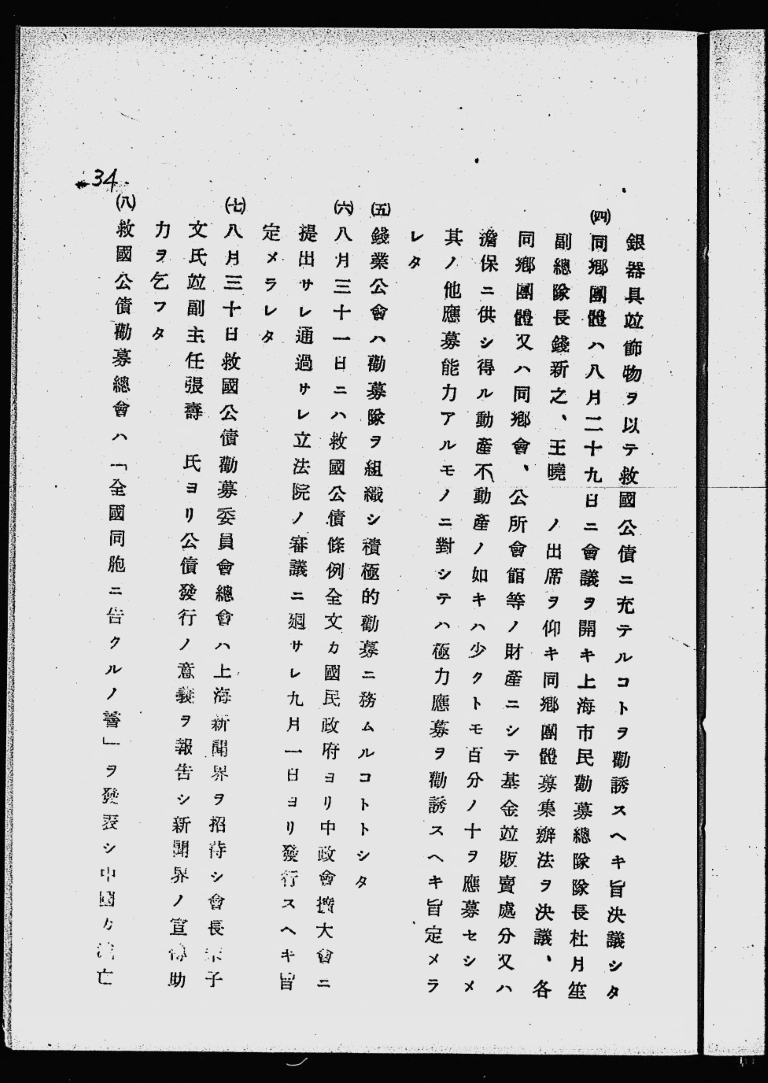 34
銀器具竝飾物ヲ以テ救國公債ニ充テルコトヲ勸誘スヘキ旨決議シタ
㈣同鄕團體ハ八月二十九日ニ會議ヲ開キ上海市民勸募總隊隊長杜月笙
副總隊長錢新之、王曉　ノ出席ヲ仰キ同鄕團體募集辦法ヲ決議、各
同鄕團體又ハ同鄕會、公所會館等ノ財產ニシテ基金竝販賣處分又ハ
擔保ニ供シ得ル動產不動產ノ如キハ少クトモ百分ノ十ヲ應募セシメ
其ノ他應募能力アルモノニ對シテハ極力應募ヲ勸誘スヘキ旨定メラ
レタ
㈤錢業公會ハ勸募隊ヲ組織シ積極的勸募ニ務ムルコトトシタ
㈥八月三十一日ニハ救國公債條例全文カ國民政府ヨリ中政會擴大會ニ
提出サレ通過サレ立法院ノ審議ニ廻サレ九月一日ヨリ發行スヘキ旨
定メラレタ
㈦八月三十日救國公債勸募委員會總會ハ上海新聞界ヲ招待シ會長宋子
文氏竝副主任張壽　氏ヨリ公債發行ノ意義ヲ報告シ新聞界ノ宣傳助
力ヲ乞フタ
㈧救國公債勸募總會ハ「全國同胞ニ告クルノ書」ヲ發表シ中國カ滅亡